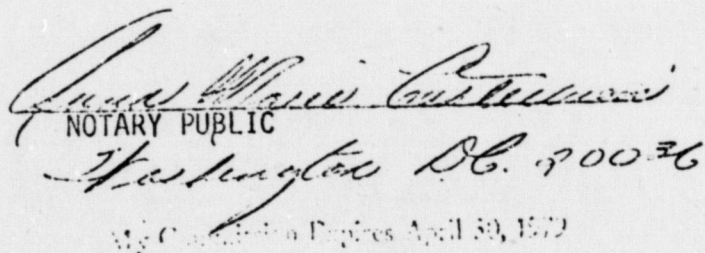 Marie
NOTARY PUBLIC
Washington DC. 20036
My Commission Expires April 30, 1979